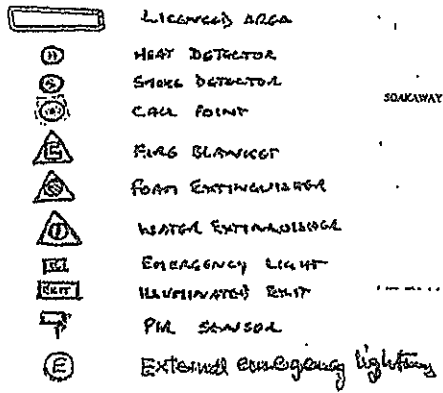 LICENCED AREA
H HEAT DETECTOR
S SMOKE DETECTOR
CALL POINT
SOAKAWAY
FIRE BLANKET
FOAM EXTINGUISHER
WATER EXTINGUISHER
EMERGENCY LIGHT
EXIT ILLUMINATED EXIT
PIR SENSOR
E External emergency lighting